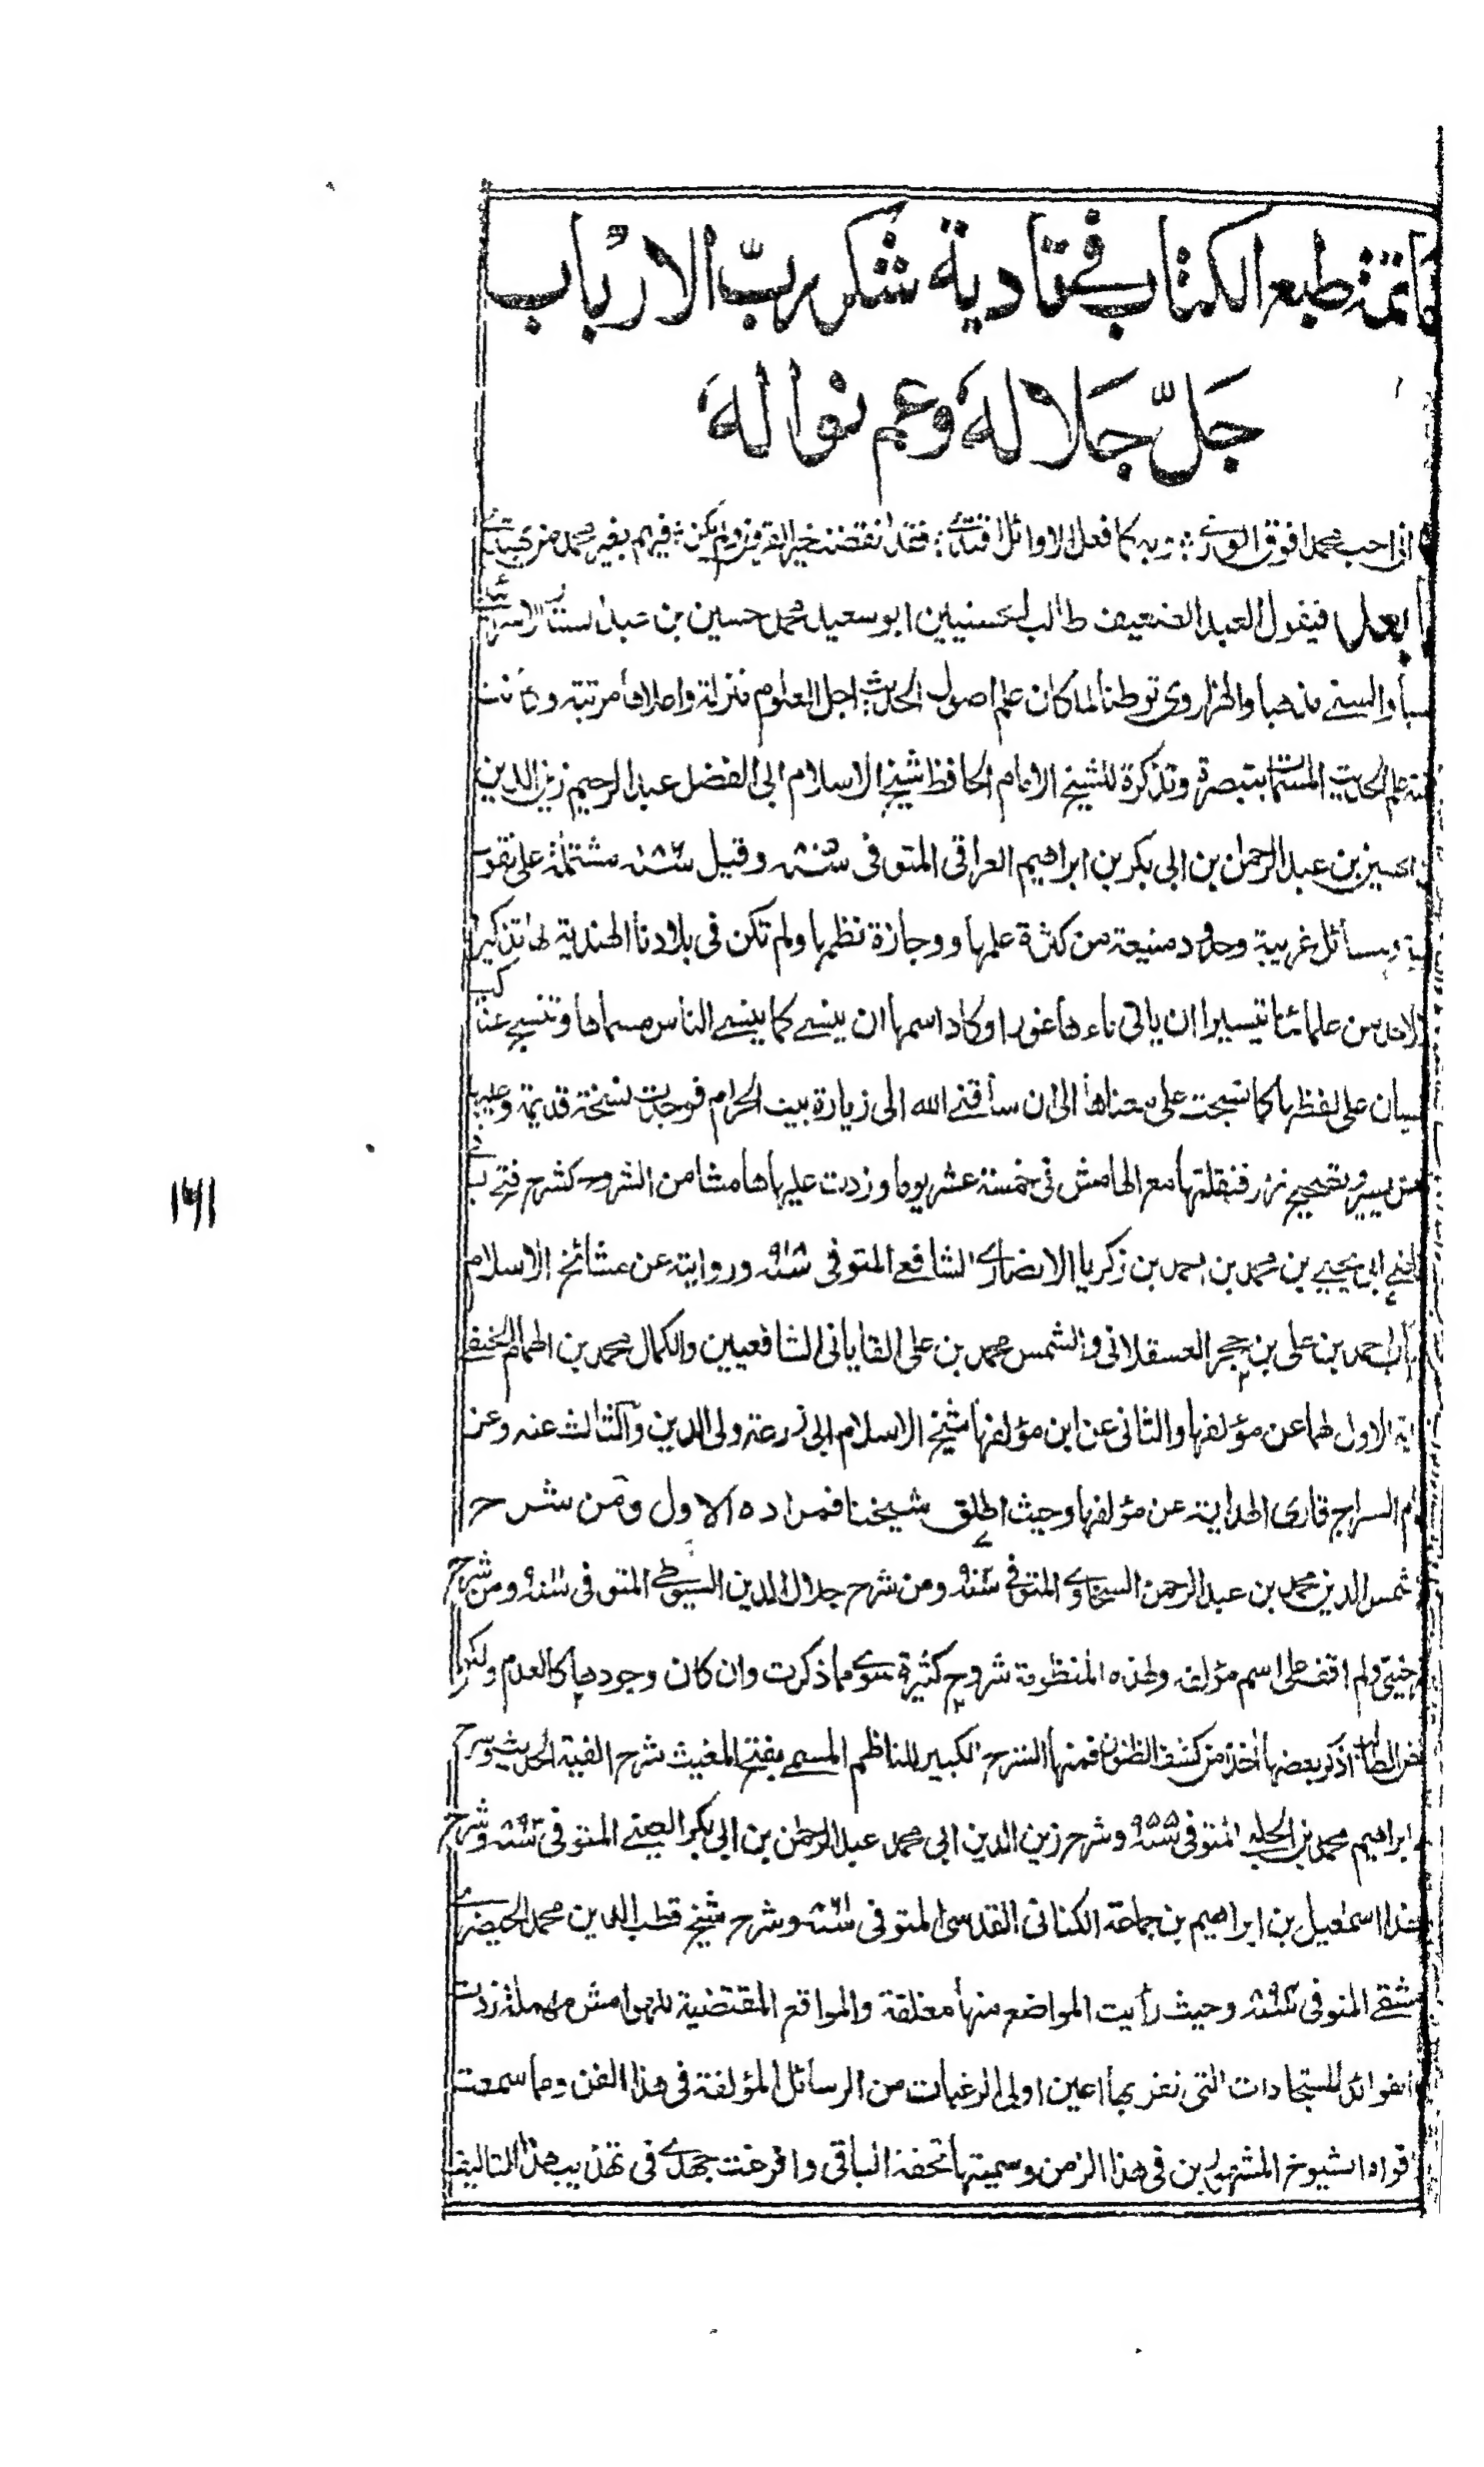 خاتمة طبع الكتاب فى تادية شكر ربّ الارباب
جَلّ جَلاله وعم نواله
انى احب محمدا فوق الورى وبه كما فعل الاوائل اقتدى فقد انقضت خير القرون ولم يكن فيهم بغير محمد من يقتدى
اما بعد فيقول العبد الضعيف طالب الحسنيين ابو سعيد محمد حسين بن عبد الستار
والسنى مذهبا والهزاروى توطنا لما كان علم اصول الحديث اجل العلوم منزلة و مرتبة وكانت
علم الحديث المسماة بتبصرة وتذكرة للشيخ الامام الحافظ شيخ الاسلام ابى الفضل عبد الرحيم زين الدين
الحسين بن عبد الرحمن بن ابى بكر بن ابراهيم العراقى المتوفى سنة وقيل سنة مشتملة على نقول
ومسائل غريبة وحدود منيعة من كثرة علمها ووجازة نظمها ولم تكن فى بلادنا الهندية لها تذكيرا
من علمائنا تيسيرا ان ياتى ماءها غورا وكاد اسمها ان ينسى كما ينسى الناس مسماها وتنسج عناكب
على لفظها كما نسجت على معناها الى ان ساقنى الله الى زيارة بيت الحرام فوجدت نسخة قديمة وعليها
يسير وتصحيح نزر فنقلتها مع الهامش فى خمسة عشر يوما وزدت عليها هامشا من الشروح كشرح فتح
ابى يحيى بن محمد بن احمد بن زكريا الانصارى الشافعى المتوفى سنة وروايته عن مشائخ الاسلام
احمد بن على بن حجر العسقلانى والشمس محمد بن على القاياتى الشافعيين والكمال محمد بن الهمام الحنفى
الاول لهما عن مؤلفها والثانى عن ابن مؤلفها شيخ الاسلام ابى زرعة ولى الدين والثالث عنه وعن
السراج قارى الهداية عن مؤلفها وحيث اطلق شيخنا فمراده الاول ومن شرح
شمس الدين محمد بن عبد الرحمن السخاوى المتوفى سنة ٩٠٢ ومن شرح جلال الدين السيوطى المتوفى سنة ٩١١ ومن شرح
ولم اقف على اسم مؤلفه ولهذه المنظومة شروح كثيرة سوى ما ذكرت وان كان وجودها كالعدم ولكن
اذكر بعضها اخذا من كشف الظنون فمنها الشرح الكبير للناظم المسمى بفتح المغيث شرح الفية الحديث وشرح
ابراهيم محمد بن الحلبى المتوفى سنة ٩٥٥ وشرح زين الدين ابى محمد عبد الرحمن بن ابى بكر العينى المتوفى سنة ٨٩٣ وشرح
اسمعيل بن ابراهيم بن جماعة الكنانى القدسى المتوفى سنة ٨٦١ وشرح شيخ قطب الدين محمد الخيضرى
المتوفى سنة وحيث رأيت المواضع منها مغلقة والمواقع المقتضية للهوامش مهملة زدت
الفوائد المستجادات التى تقر بها اعين اولى الرغبات من الرسائل المؤلفة فى هذا الفن وما سمعت
افواه الشيوخ المشهورين فى هذا الزمن وسميتها تحفة الباقى وافرغت جهدى فى تهذيب هذا التاليف